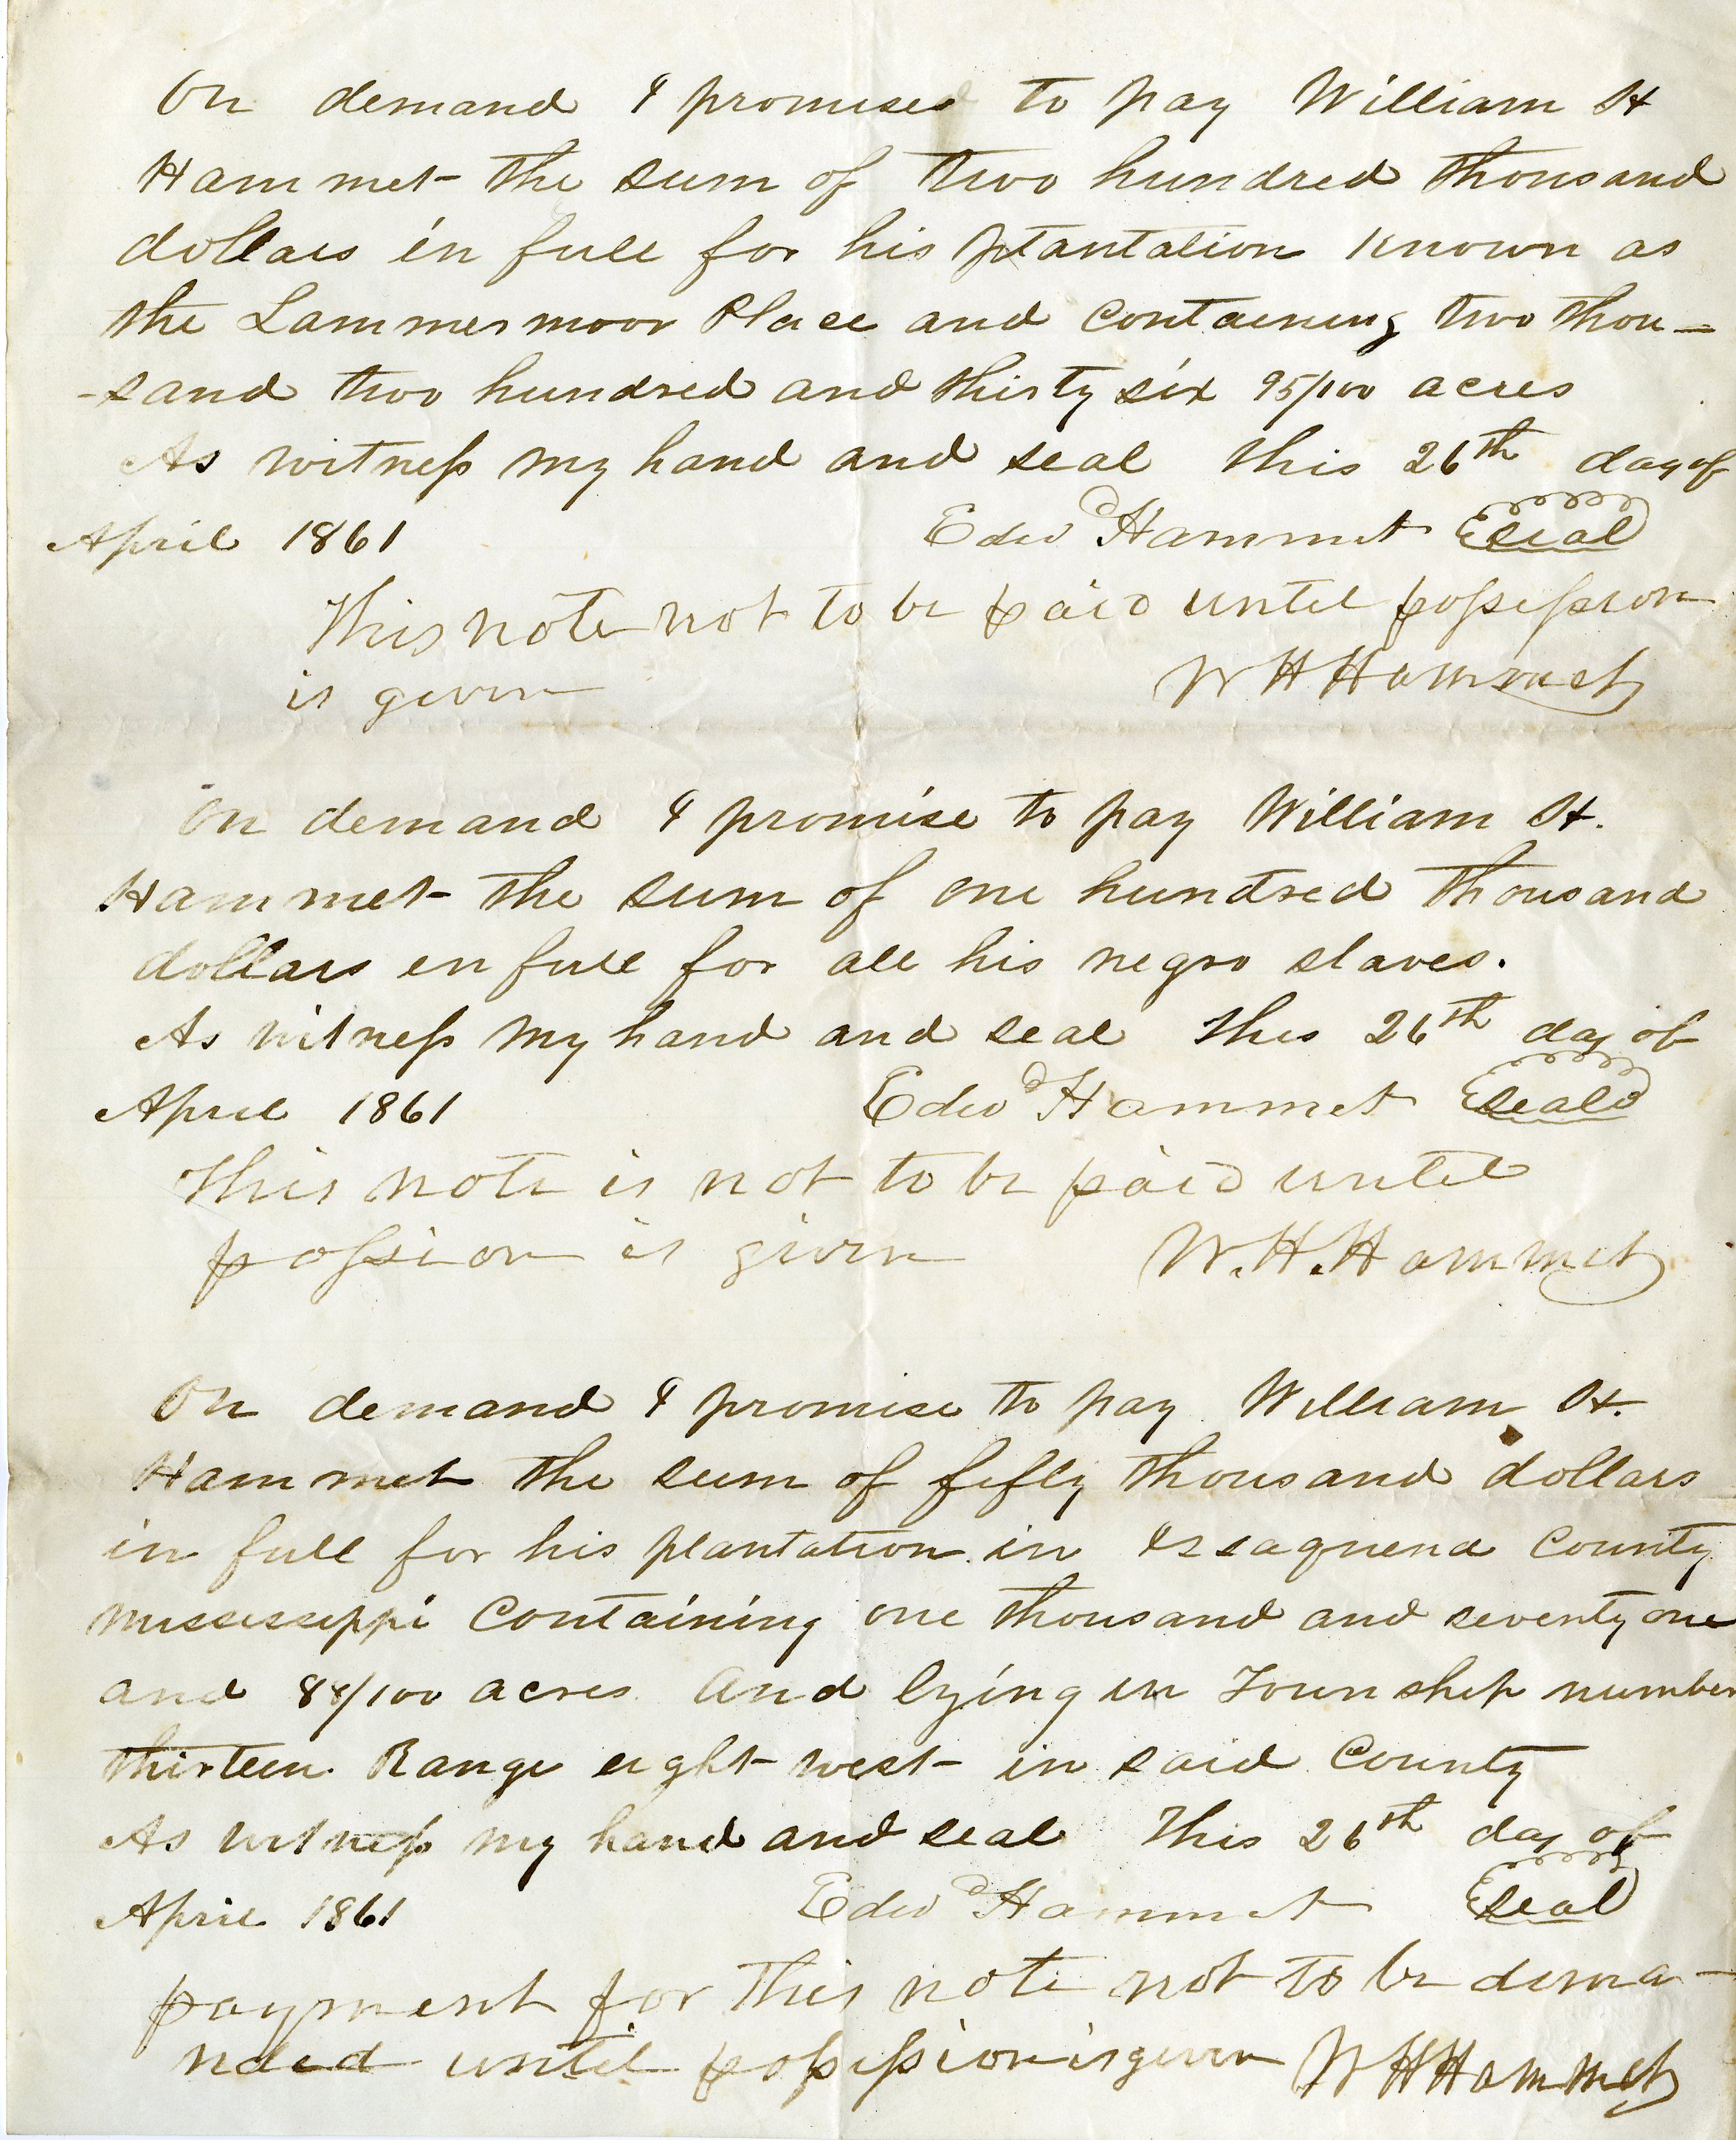 On demand I promised to pay William H
Hammet the sum of two hundred thousand
dollars in full for his plantation known as
the Lammermoor Place and containing two thou-
-sand two hundred and thirty six 95/100 acres
As witness my hand and seal this 26th day of
April 1861 Edwd Hammet Seal
This note not to be paid until possession
is given W H Hammet
On demand I promise to pay William H.
Hammet the sum of one hundred thousand
dollars in full for all his negro slaves.
As witness my hand and seal this 26th day of
April 1861 Edwd Hammet Seal
This note is not to be paid until
possion is given W. H. Hammet
On demand I promise to pay William H.
Hammet the sum of fifty thousand dollars
in full for his plantation in Issaquena County
Mississippi Containing one thousand and seventy one
and 88/100 acres And lying in Township number
thirteen Range eight west in said County
As witness my hand and seal This 26th day of
April 1861 Edwd Hammet Seal
payment for this note not to be dema-
nded until possession is given W H Hammet